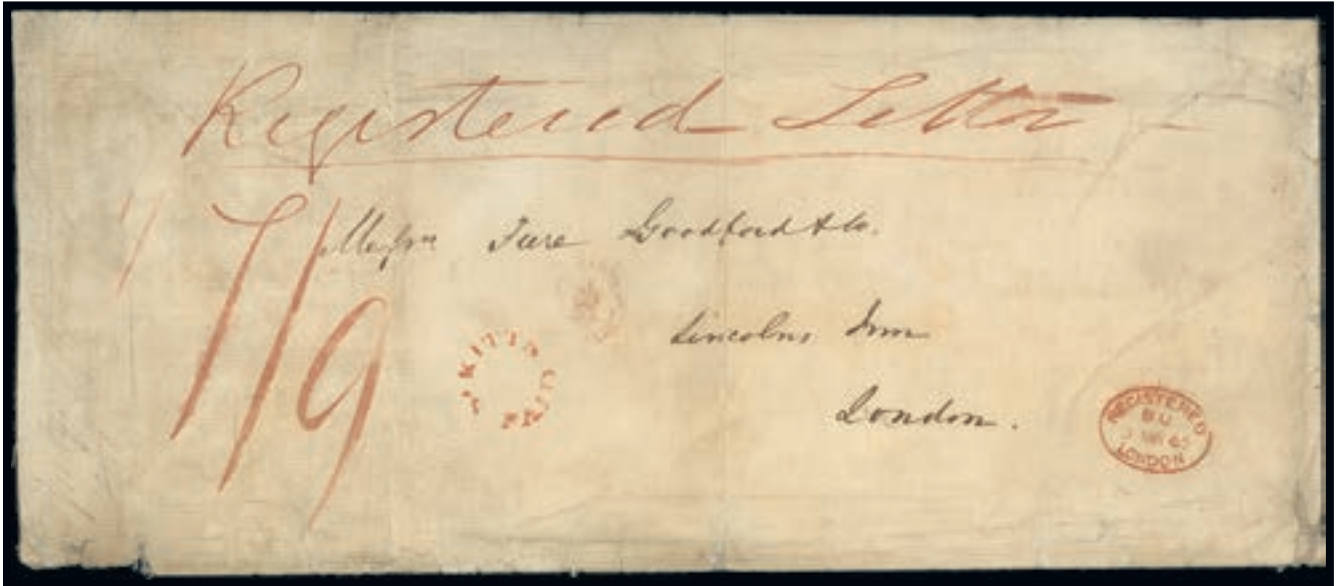 Registered Letter
7/9
Messrs Ture Goodford & Co.
Lincolns Inn
London.
REGISTERED
LONDON